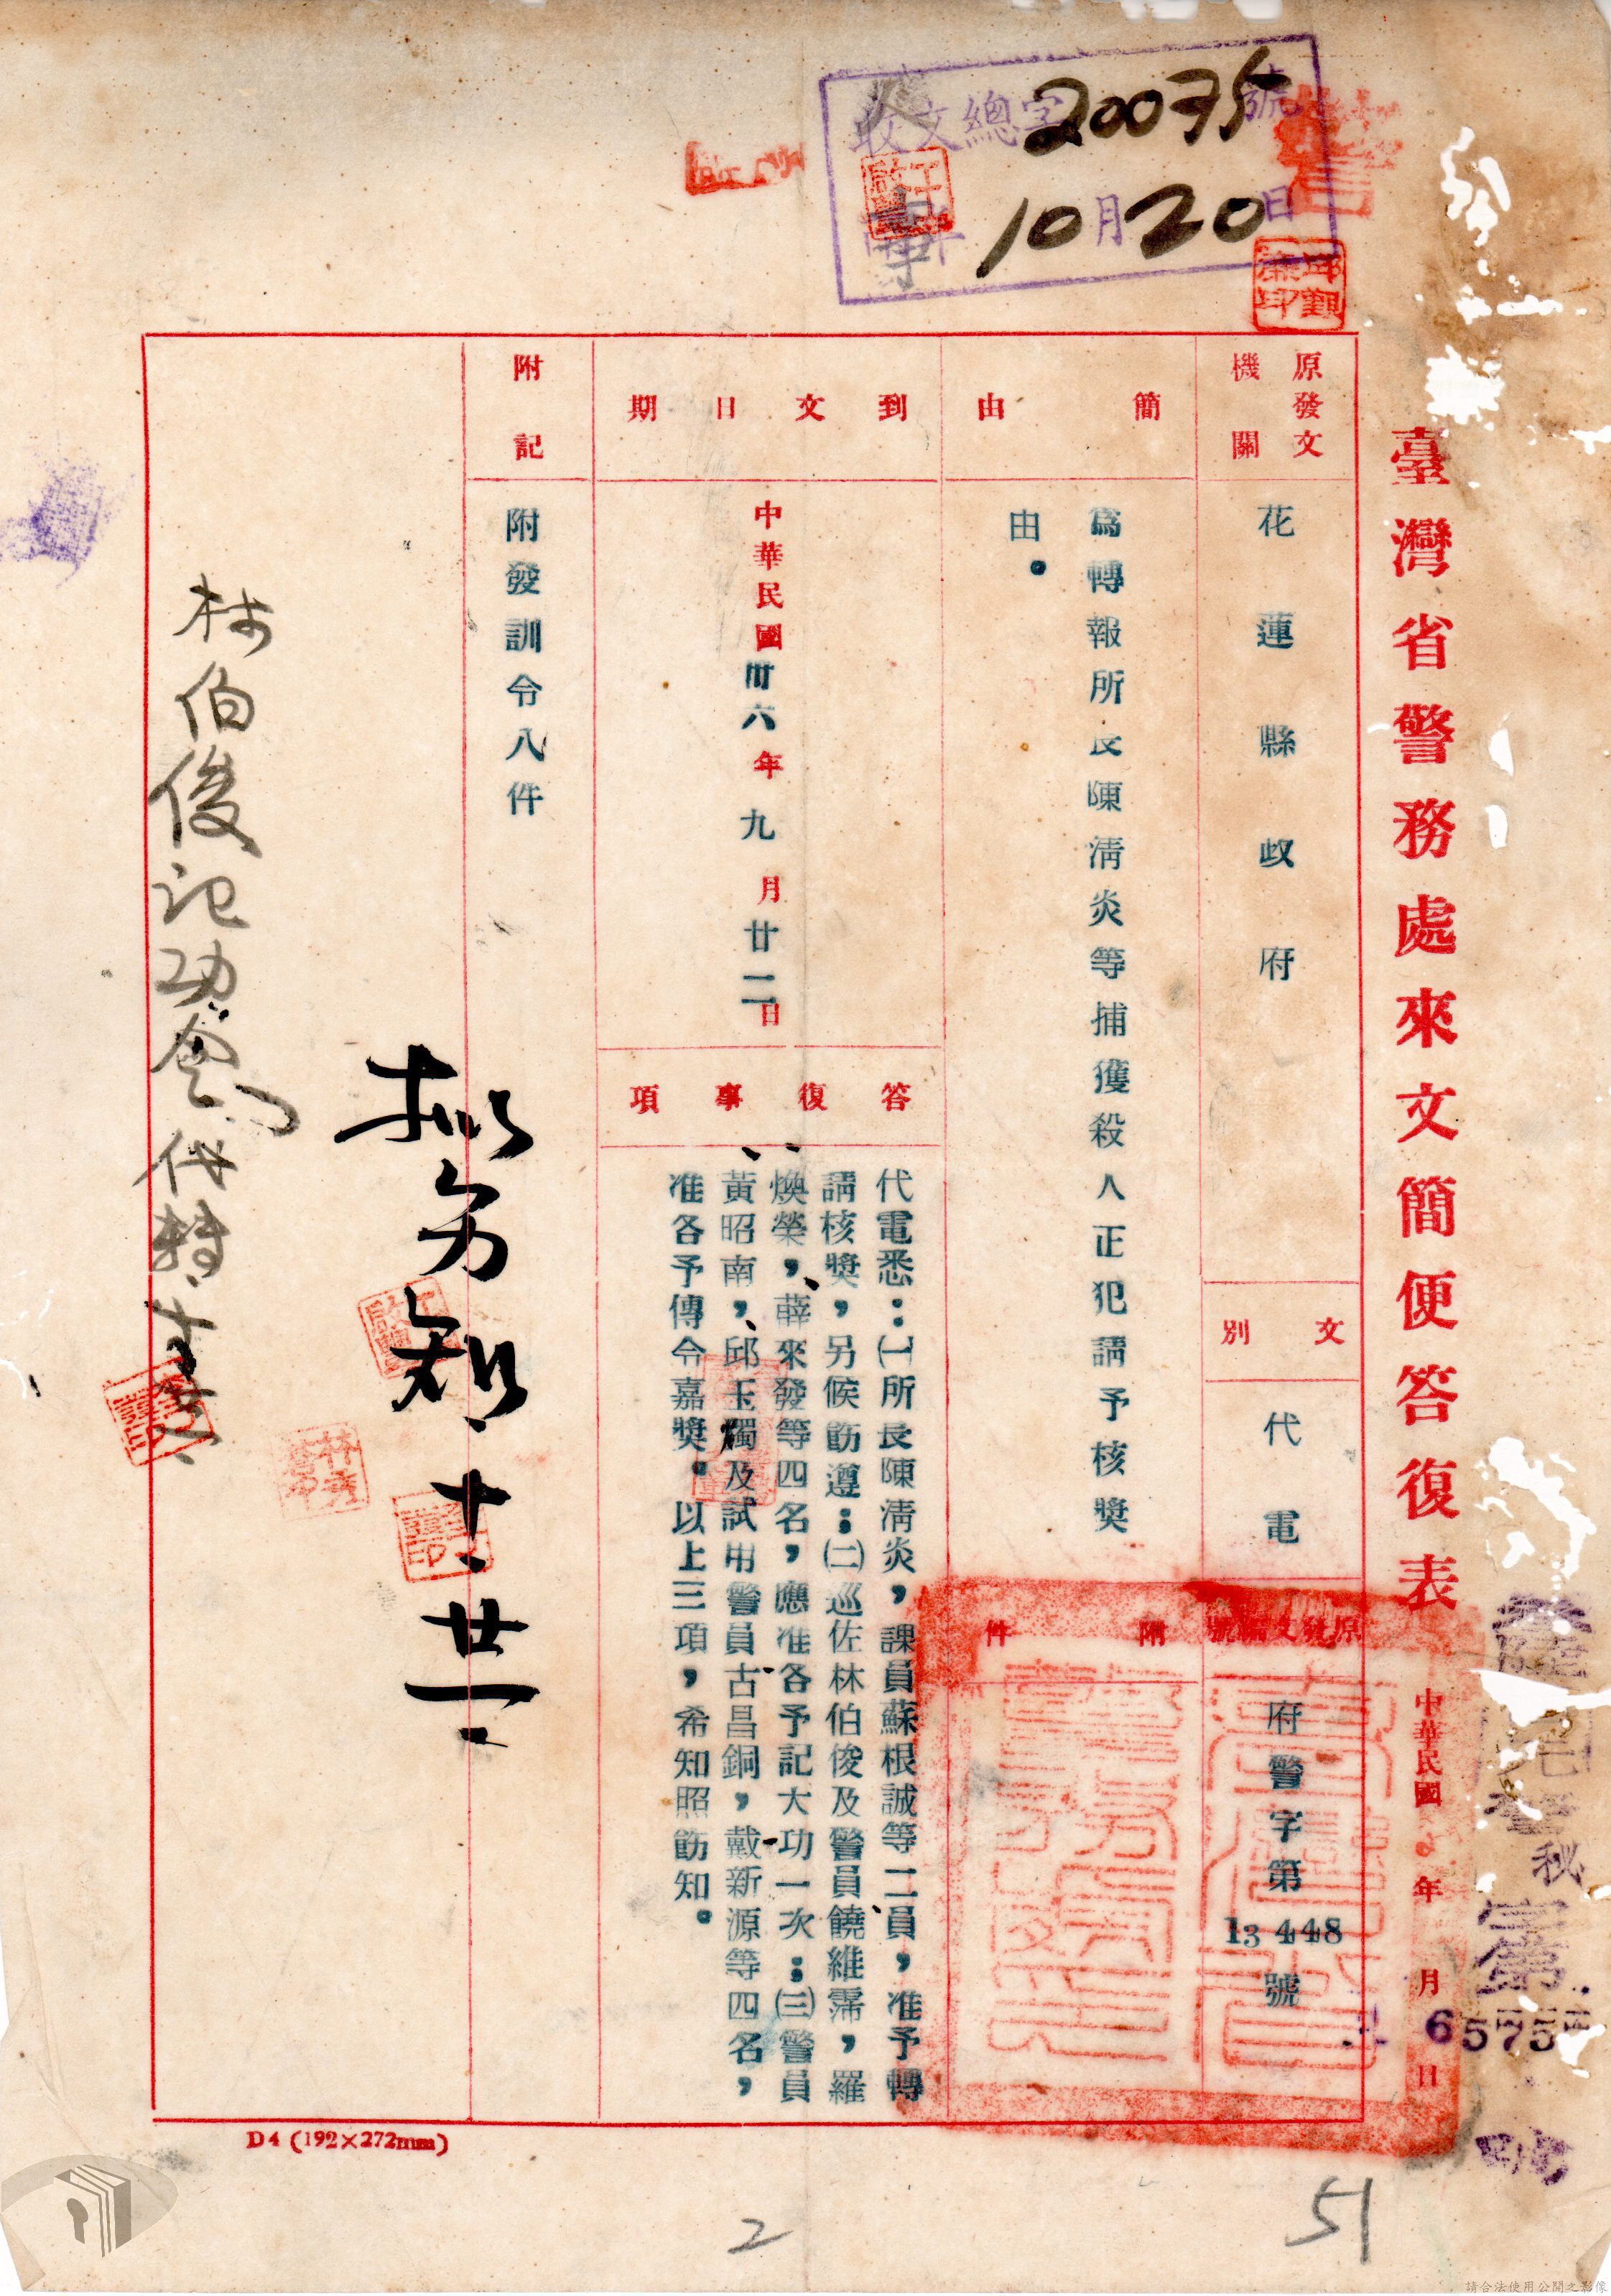 收文總字20075號
10月20日
人事
臺灣省警務處來文簡便答復表
中華民國 年 月 日
秘
字第
6575
原發文機關
花蓮縣政府
文別
代電
原發文編號
府警字第13448號
簡由
爲轉報所長陳淸炎等捕獲殺人正犯請予核獎
由。
附件
到文日期
中華民國卅六年九月廿二日
答復事項
代電悉：㈠所長陳淸炎，課員蘇根誠等二員，准予轉
請核獎，另候飭遵：㈡巡佐林伯俊及警員饒維霈，羅
煥榮，薛來發等四名，應准各予記大功一次：㈢警員
黃昭南，邱玉燭及試用警員古昌銅，戴新源等四名，
准各予傳令嘉獎。以上三項，希知照飭知。
附記
附發訓令八件
擬分知 十、廿一、
林伯俊記功令 代轉
D4 (192×272mm)
2
51
請合法使用公開之影像